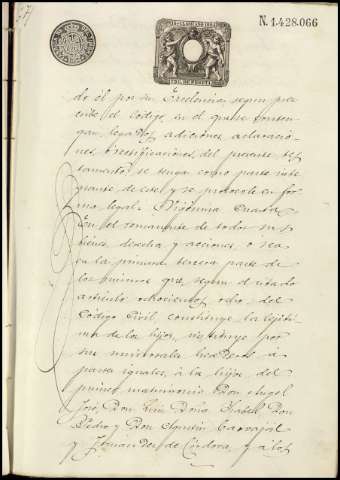 N. 1.428.066
do él por su Excelencia segun pre
cribe el Código, en el que se conten
gan legados, adiciones, aclaracio
nes ó rectificaciones del presente tes
tamento se tenga como parte inte
grante de este y se protocole en for
ma legal. Vigésima Cuarta
En el remanente de todos sus
bienes, derechos y acciones ó sea
en la primera tercera parte de
los mismos que, segun el citado
artículo ochocientos ocho del
Código Civil, constituye la lejíti
ma de los hijos, instituye por
sus universales herederos á
partes iguales, á los hijos del
primer matrimonio Don Angel
José, Don Luis Doña Isabel Don
Pedro y Don Agustin Carvajal
y Fernandez de Córdova, y á los